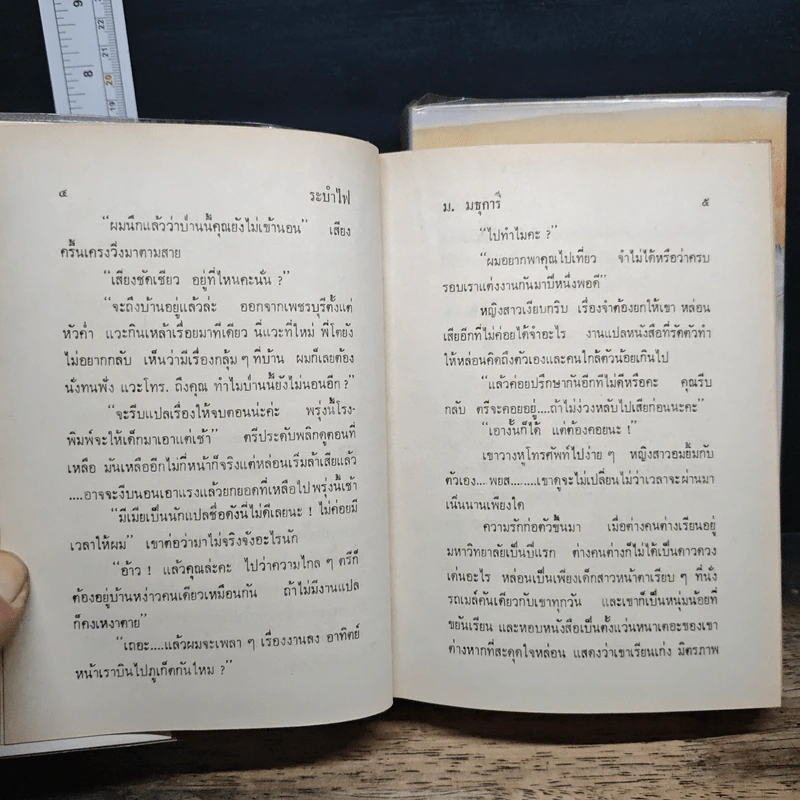 9
8
22
21
20
19
๔ ระบำไฟ
“ผมนึกแล้วว่าป่านนี้คุณยังไม่เข้านอน” เสียง
ครื้นเครงวิ่งมาตามสาย
“เสียงชัดเชียว อยู่ที่ไหนคะนั่น ?”
“จะถึงบ้านอยู่แล้วล่ะ ออกจากเพชรบุรีตั้งแต่
หัวค่ำ แวะกินเหล้าเรื่อยมาทีเดียว นี่แวะที่ใหม่ พี่โตยัง
ไม่อยากกลับ เห็นว่ามีเรื่องกลุ้ม ๆ ที่บ้าน ผมก็เลยต้อง
นั่งทนฟัง แวะโทร. ถึงคุณ ทำไมป่านนี้ยังไม่นอนอีก ?”
“จะรีบแปลเรื่องให้จบตอนน่ะค่ะ พรุ่งนี้โรง-
พิมพ์จะให้เด็กมาเอาแต่เช้า” ตรีประดับพลิกดูตอนที่
เหลือ มันเหลืออีกไม่กี่หน้าก็จริงแต่หล่อนเริ่มล้าเสียแล้ว
....อาจจะงีบนอนเอาแรงแล้วยกยอดที่เหลือไปพรุ่งนี้เช้า
“มีเมียเป็นนักแปลชื่อดังนี่ไม่ดีเลยนะ ! ไม่ค่อยมี
เวลาให้ผม” เขาต่อว่ามาไม่จริงจังอะไรนัก
“อ้าว ! แล้วคุณล่ะคะ ไปว่าความไกล ๆ ตรีก็
ต้องอยู่บ้านหง่าวคนเดียวเหมือนกัน ถ้าไม่มีงานแปล
ก็คงเหงาตาย”
“เถอะ....แล้วผมจะเพลา ๆ เรื่องงานลง อาทิตย์
หน้าเราบินไปภูเก็ตกันไหม ?”
ม. มธุการี ๕
“ไปทำไมคะ ?”
“ผมอยากพาคุณไปเที่ยว จำไม่ได้หรือว่าครบ
รอบเราแต่งงานกันมาปีหนึ่งพอดี”
หญิงสาวเงียบกริบ เรื่องจำต้องยกให้เขา หล่อน
เสียอีกที่ไม่ค่อยได้จำอะไร งานแปลหนังสือที่รัดตัวทำ
ให้หล่อนคิดถึงตัวเองและคนใกล้ตัวน้อยเกินไป
“แล้วค่อยปรึกษากันอีกทีไม่ดีหรือคะ คุณรีบ
กลับ ตรีจะคอยอยู่....ถ้าไม่ง่วงหลับไปเสียก่อนนะคะ”
“เอางั้นก็ได้ แต่ต้องคอยนะ !”
เขาวางหูโทรศัพท์ไปง่าย ๆ หญิงสาวอมยิ้มกับ
ตัวเอง....พยส........เขาดูจะไม่เปลี่ยนไม่ว่าเวลาจะผ่านมา
เนิ่นนานเพียงใด
ความรักก่อตัวขึ้นมา เมื่อต่างคนต่างเรียนอยู่
มหาวิทยาลัยเป็นปีแรก ต่างคนต่างก็ไม่ได้เป็นดาวดวง
เด่นอะไร หล่อนเป็นเพียงเด็กสาวหน้าตาเรียบ ๆ ที่นั่ง
รถเมล์คันเดียวกับเขาทุกวัน และเขาก็เป็นหนุ่มน้อยที่
ขยันเรียน และหอบหนังสือเป็นตั้งแว่นหนาเตอะของเขา
ต่างหากที่สะดุดใจหล่อน แสดงว่าเขาเรียนเก่ง มิตรภาพ